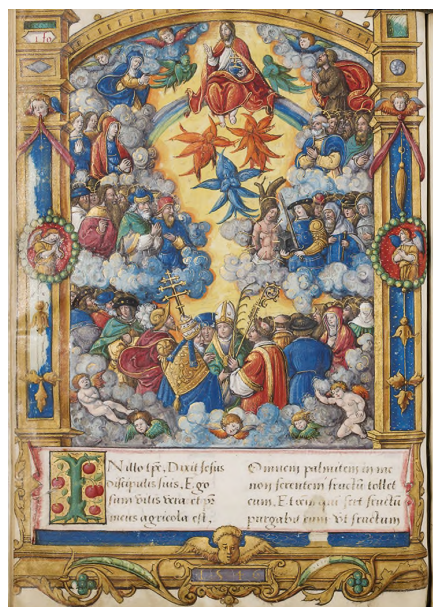 IN illo tpē, Dixit Jesus
discipulis suis, Ego
sum vitis vera, et pr̄
meus agricola est,
Omnem palmitem in me
non ferentem fructū tollet
eum, Et qui fert fructū
purgabit eum, Vt fructum